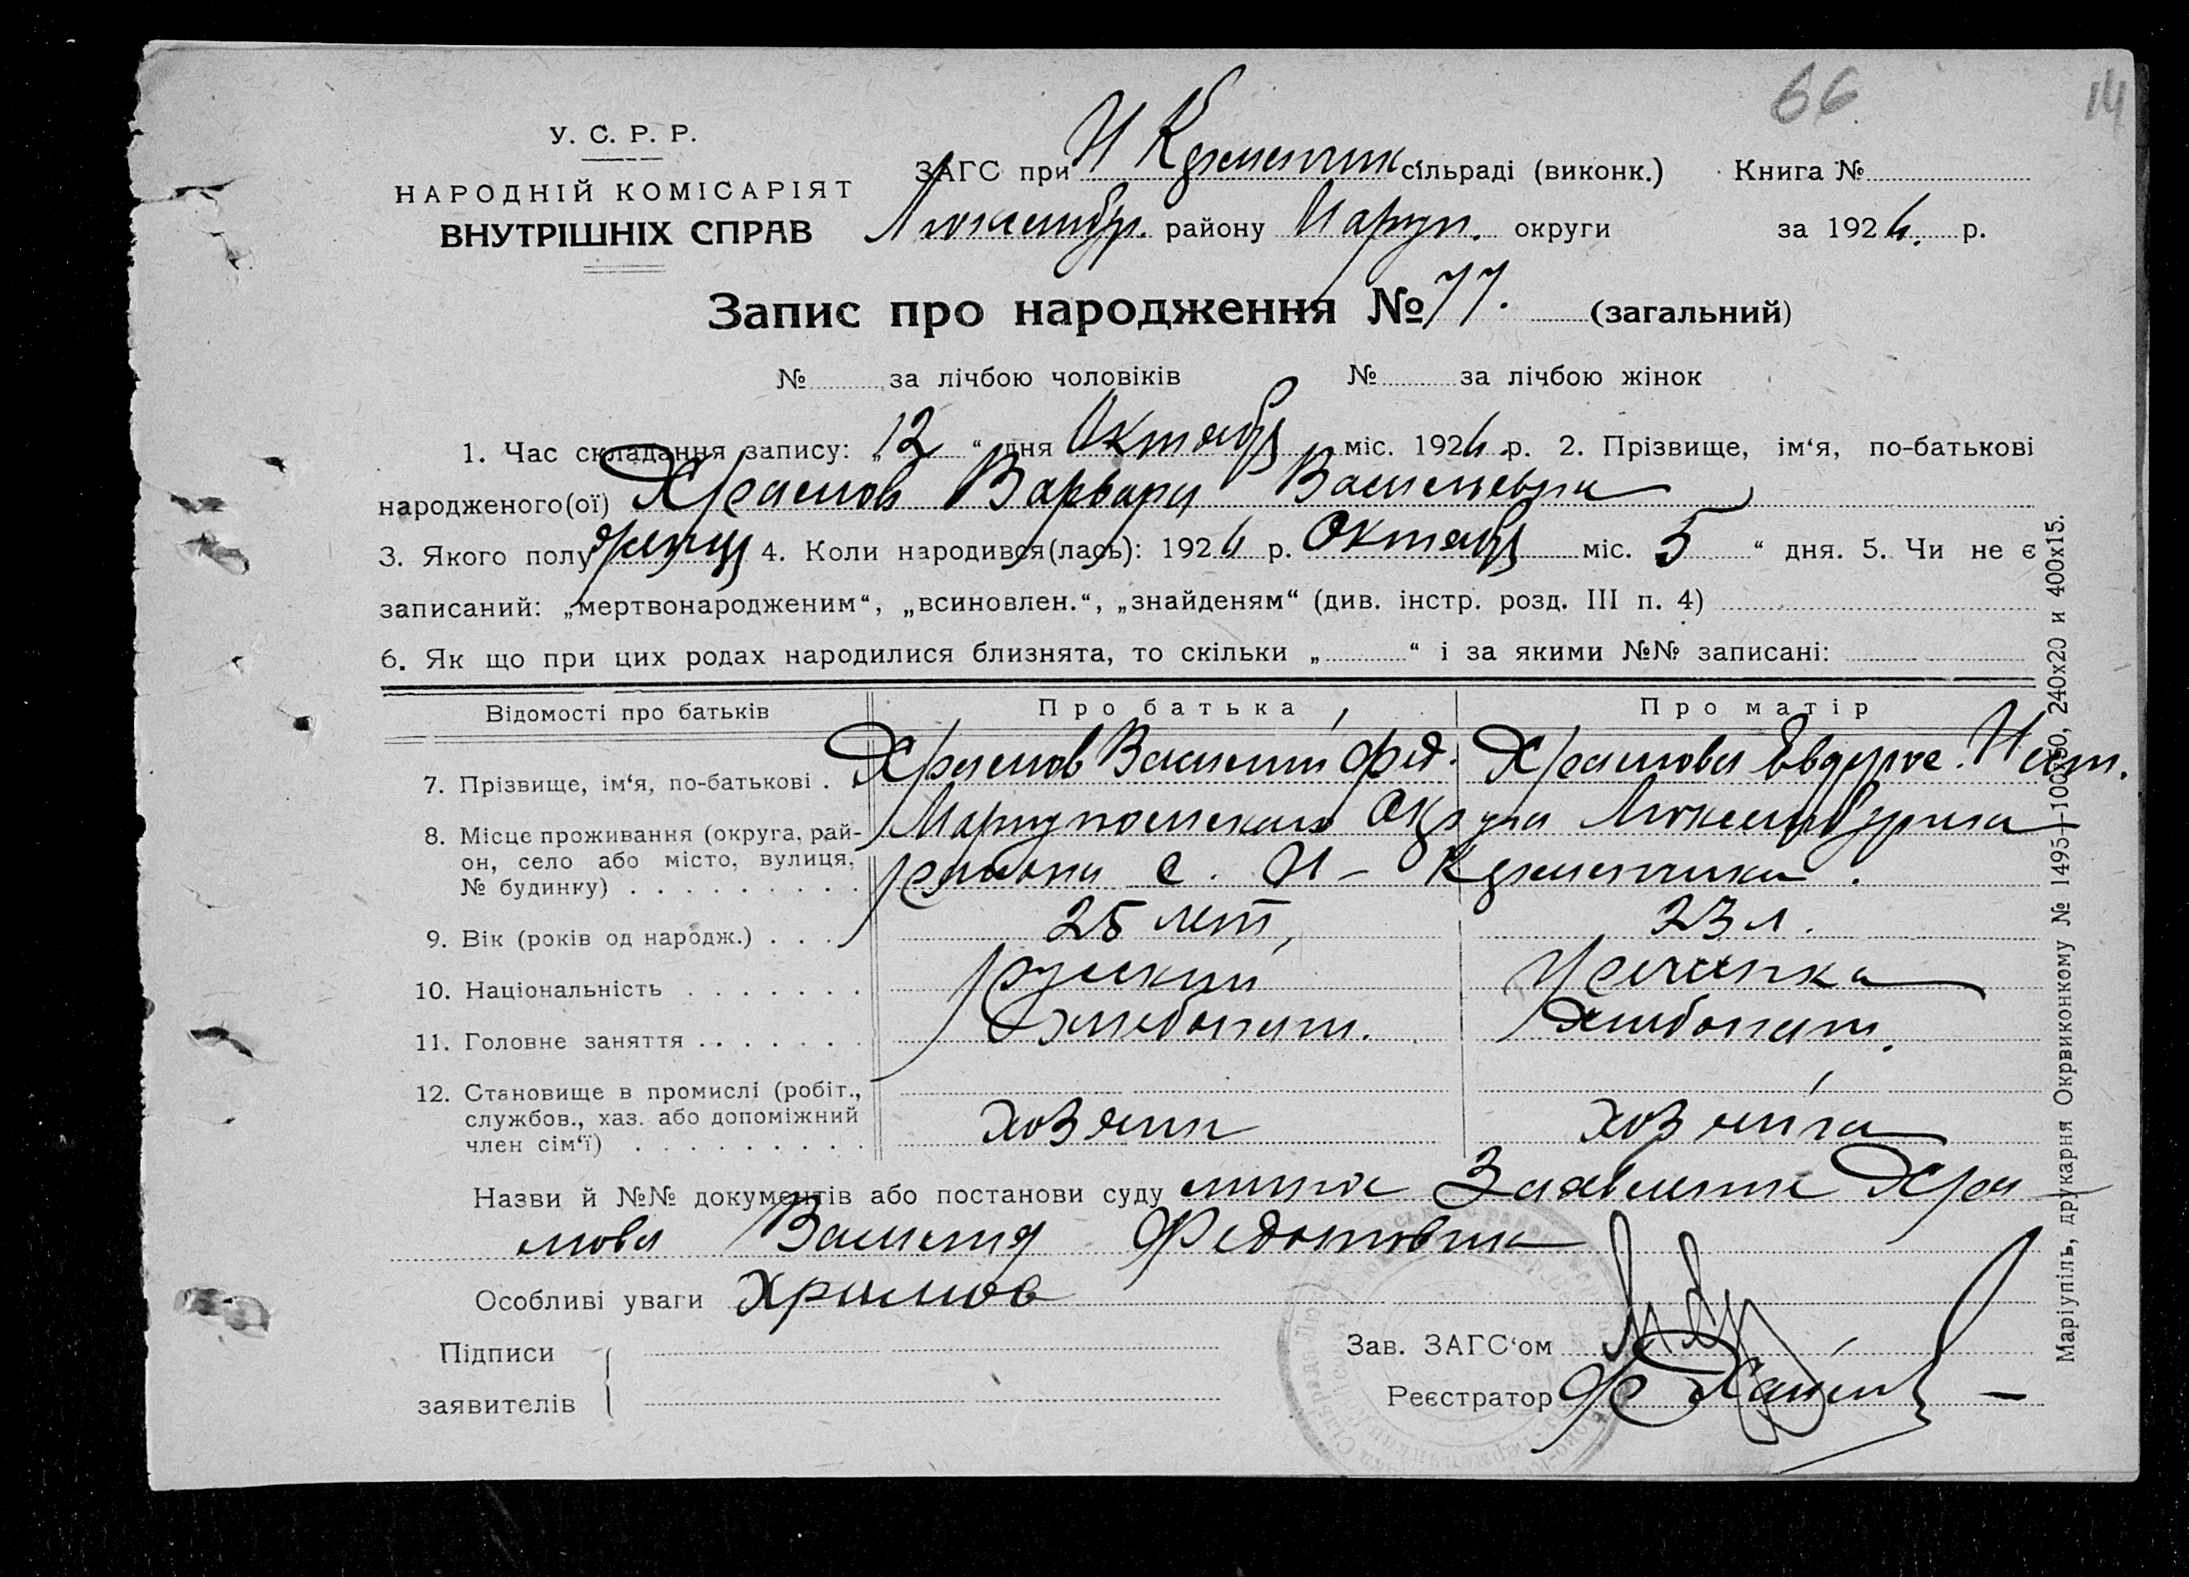 66 14
У. С. Р. Р.
НАРОДНІЙ КОМІСАРІЯТ
ВНУТРІШНІХ СПРАВ
ЗАГС при Н Керменчик сільраді (виконк.) Книга №
району Мариуп. округи за 1926. р.
Запис про народження № 77. (загальний)
№ за лічбою чоловіків № за лічбою жінок
1. Час складання запису: „12“ дня Октября міс. 1926 р. 2. Прізвище, ім‘я, по-батькові
народженого(ої) Храмов Варвара Васильевна
3. Якого полу женщ 4. Коли народився(лась): 1926 р. Октября міс. 5“ дня. 5. Чи не є
записаний: „мертвонародженим“, „всиновлен.“, „знайденям“ (див. інстр. розд. III п. 4)
6. Як що при цих родах народилися близнята, то скільки „ “ і за якими №№ записані:
Відомості про батьків Про батька Про матір
7. Прізвище, ім‘я, по-батькові . . Храмов Василий Фед. Храмова
8. Місце проживання (округа, рай-
он, село або місто, вулиця,
№ будинку) . . . . . . . . . .
Мариупольская Округа
района с. Н-Керменчик.
9. Вік (років од народж.) . . . . 25 лет, 23 л.
10. Національність . . . . . . . русский Гречанка
11. Головне заняття . . . . . . . Хлебопаш. Хлебопаш.
12. Становище в промислі (робіт.,
службов., хаз. або допоміжний
член сім‘ї) . . . . . . . . . .
хозяин хозяйка
Назви й №№ документів або постанови суду Заявление Хра
мова Василия Федотовича
Особливі уваги Храмов
Підписи
заявителів
Зав. ЗАГС‘ом
Реєстратор
Маріупіль, друкарня Окрвиконкому № 1495—100х50, 240х20 и 400х15.